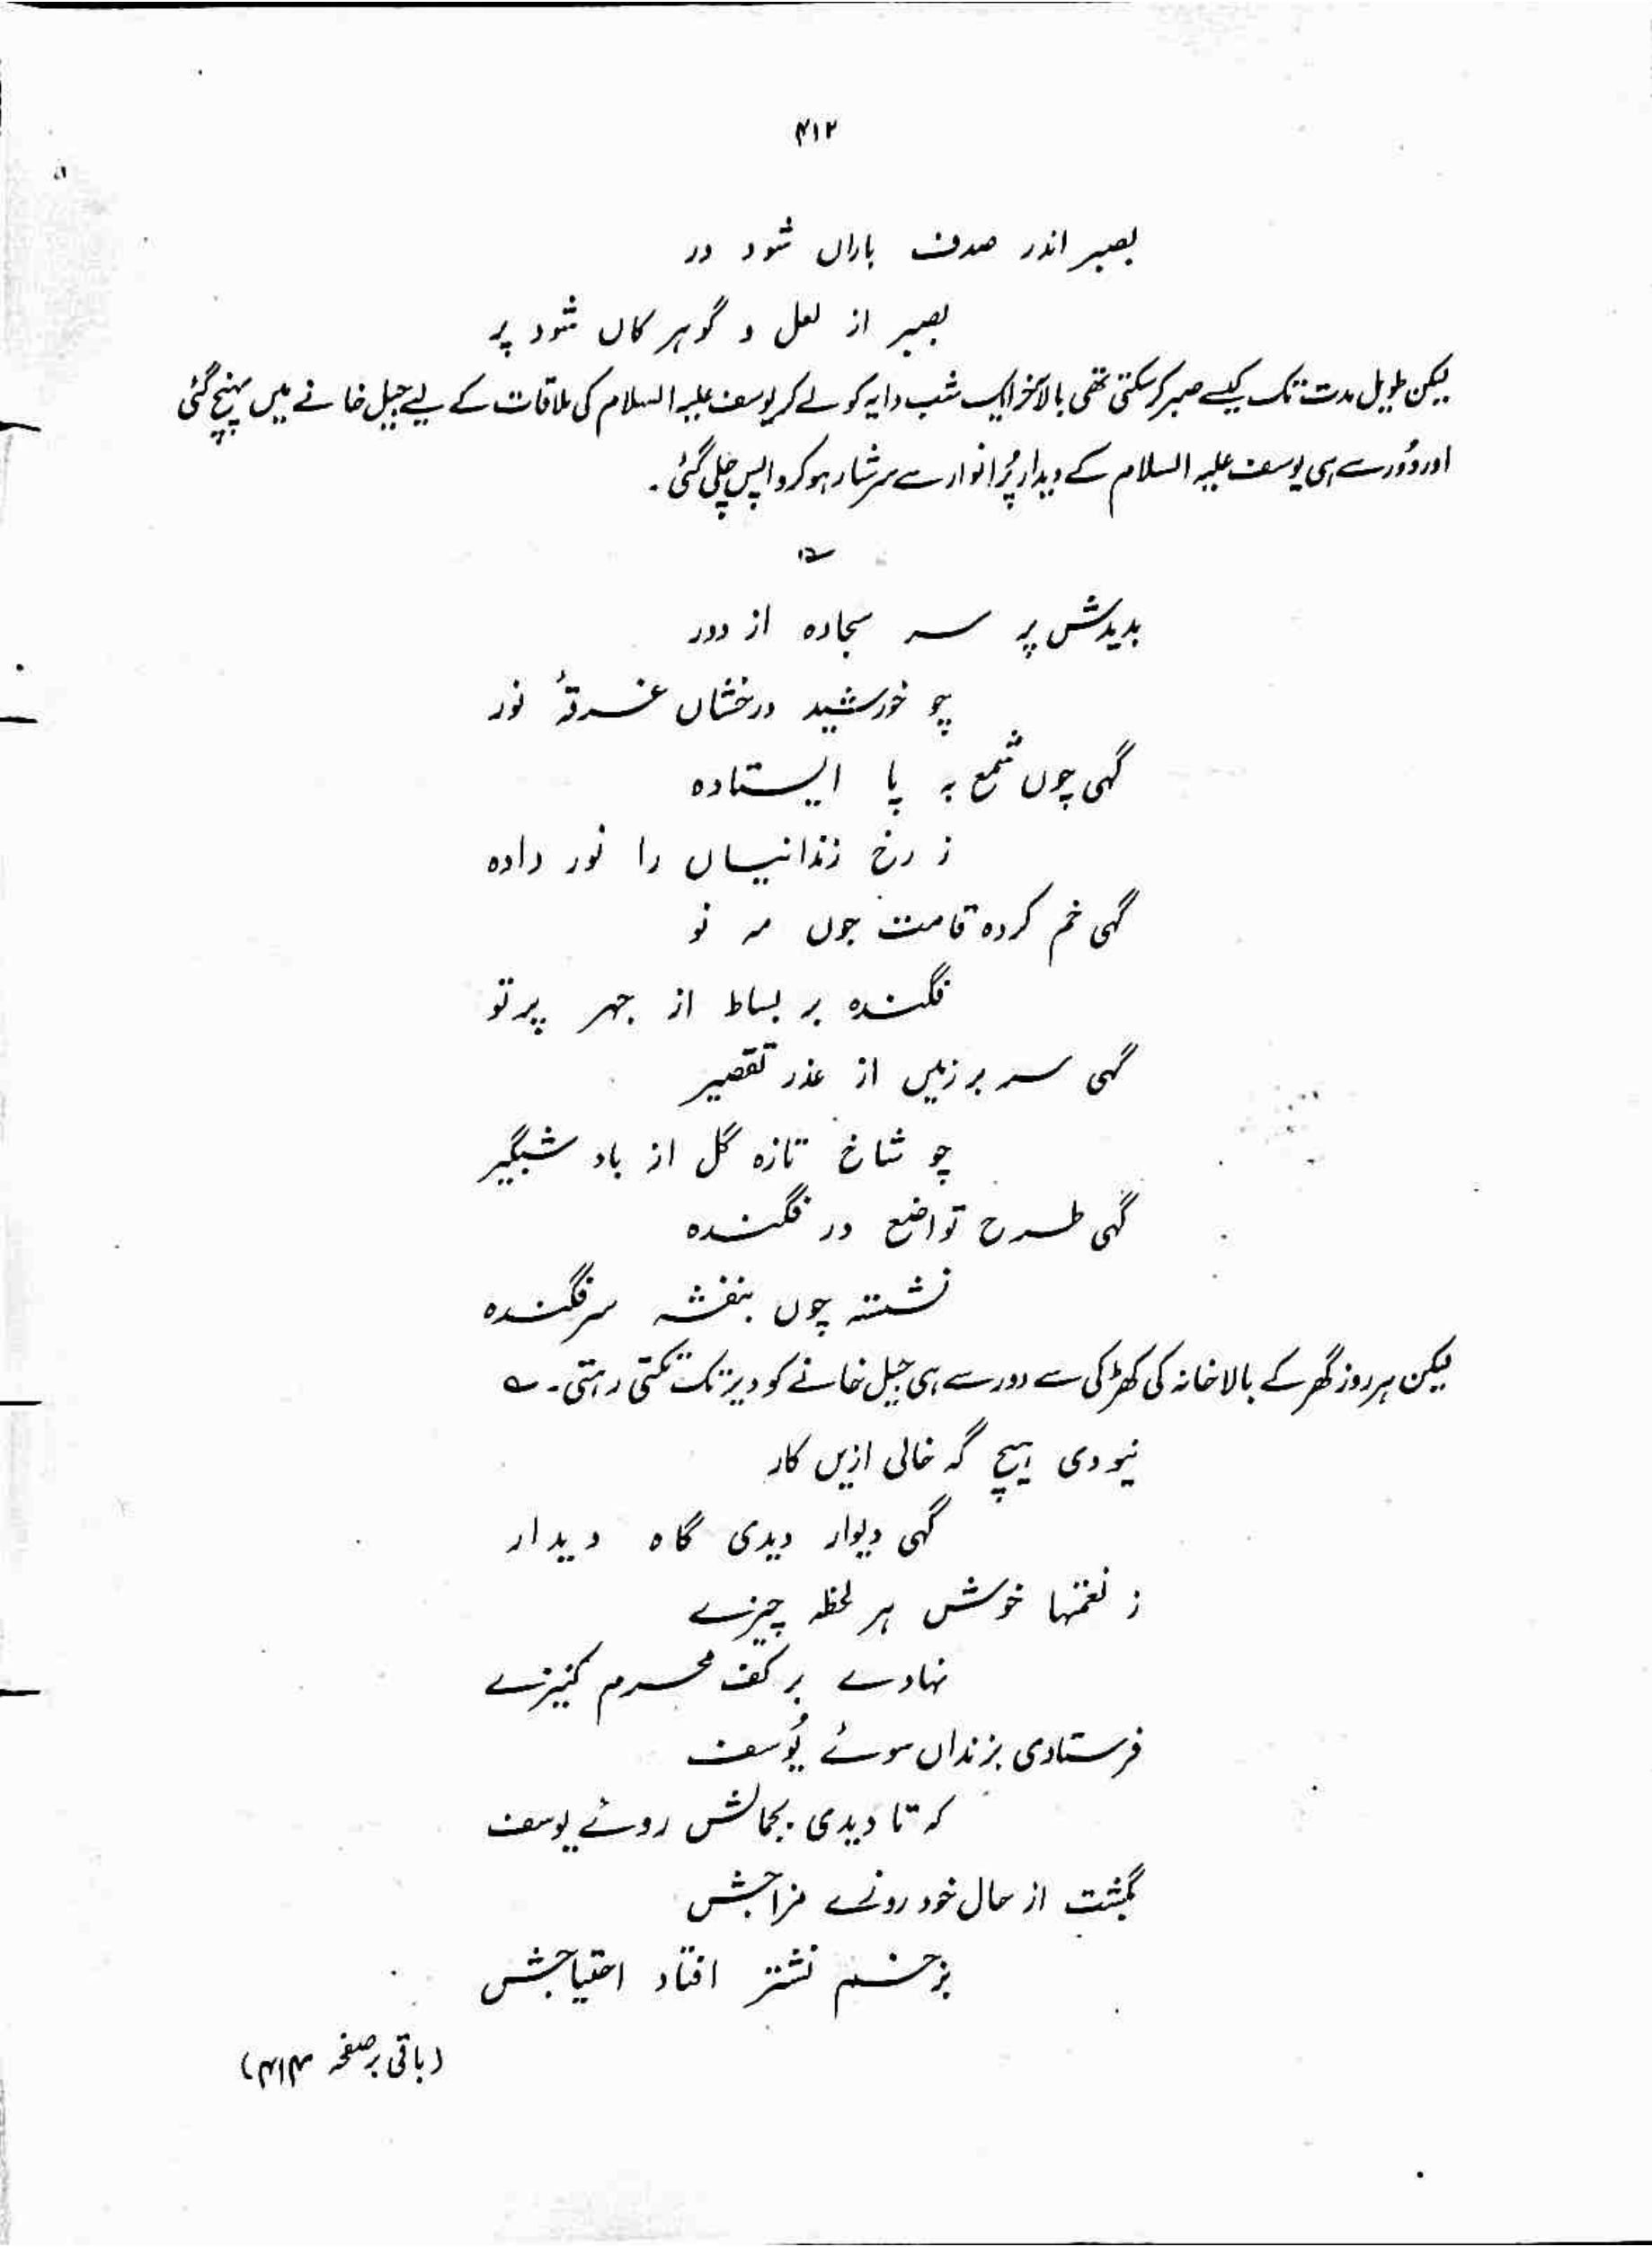 ۴۱۲
بصبر اندر صدف باراں شود در
بصبر از لعل و گوہر کاں شود پر
لیکن طویل مدت تک کیسے صبر کرسکتی تھی بالآخر ایک شب دایہ کو لے کر یوسف علیہ السلام کی ملاقات کے لیے جیل خانے میں پہنچ گئی
اور دُور سے ہی یوسف علیہ السلام کے دیدار پُر انوار سے سرشار ہوکر واپس چلی گئی ۔
؎
بدیدش پر سر سجادہ از دور
چو خورشید درخشاں غرقۂ نور
گہی چوں شمع بہ پا ایستادہ
ز رخ زندانیاں را نور دادہ
گہی خم کردہ قامت جوں مہ نو
فگندہ بر بساط از جہر پرتو
گہی سر بر زمیں از عذر تقصیر
چو شاخ تازہ گل از باد شبگیر
گہی طرح تواضع در فگندہ
نشستہ چوں بنفشہ سرفگندہ
لیکن ہر روز گھر کے بالاخانہ کی کھڑکی سے دور سے ہی جیل خانے کو دیر تک تکتی رہتی۔ ؎
نبودی ہیچ گہ خالی ازیں کار
گہی دیوار دیدی گاہ دیدار
ز نغمتہا خوش ہر لحظہ چیزے
نہادے بر کف محرم کنیزے
فرستادی بزنداں سوئے یُوسف
کہ تا دیدی بجالش روئے یوسف
بگشت از حال خود روزے مزاجش
بزخم نشتر افتاد احتیاجش
(باقی برصفحہ ۴۱۴)